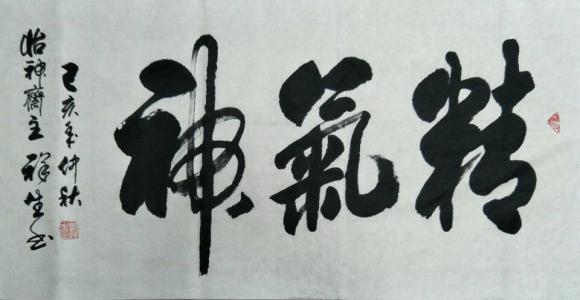 精氣神
己亥年仲秋
怡神齋主祥生书